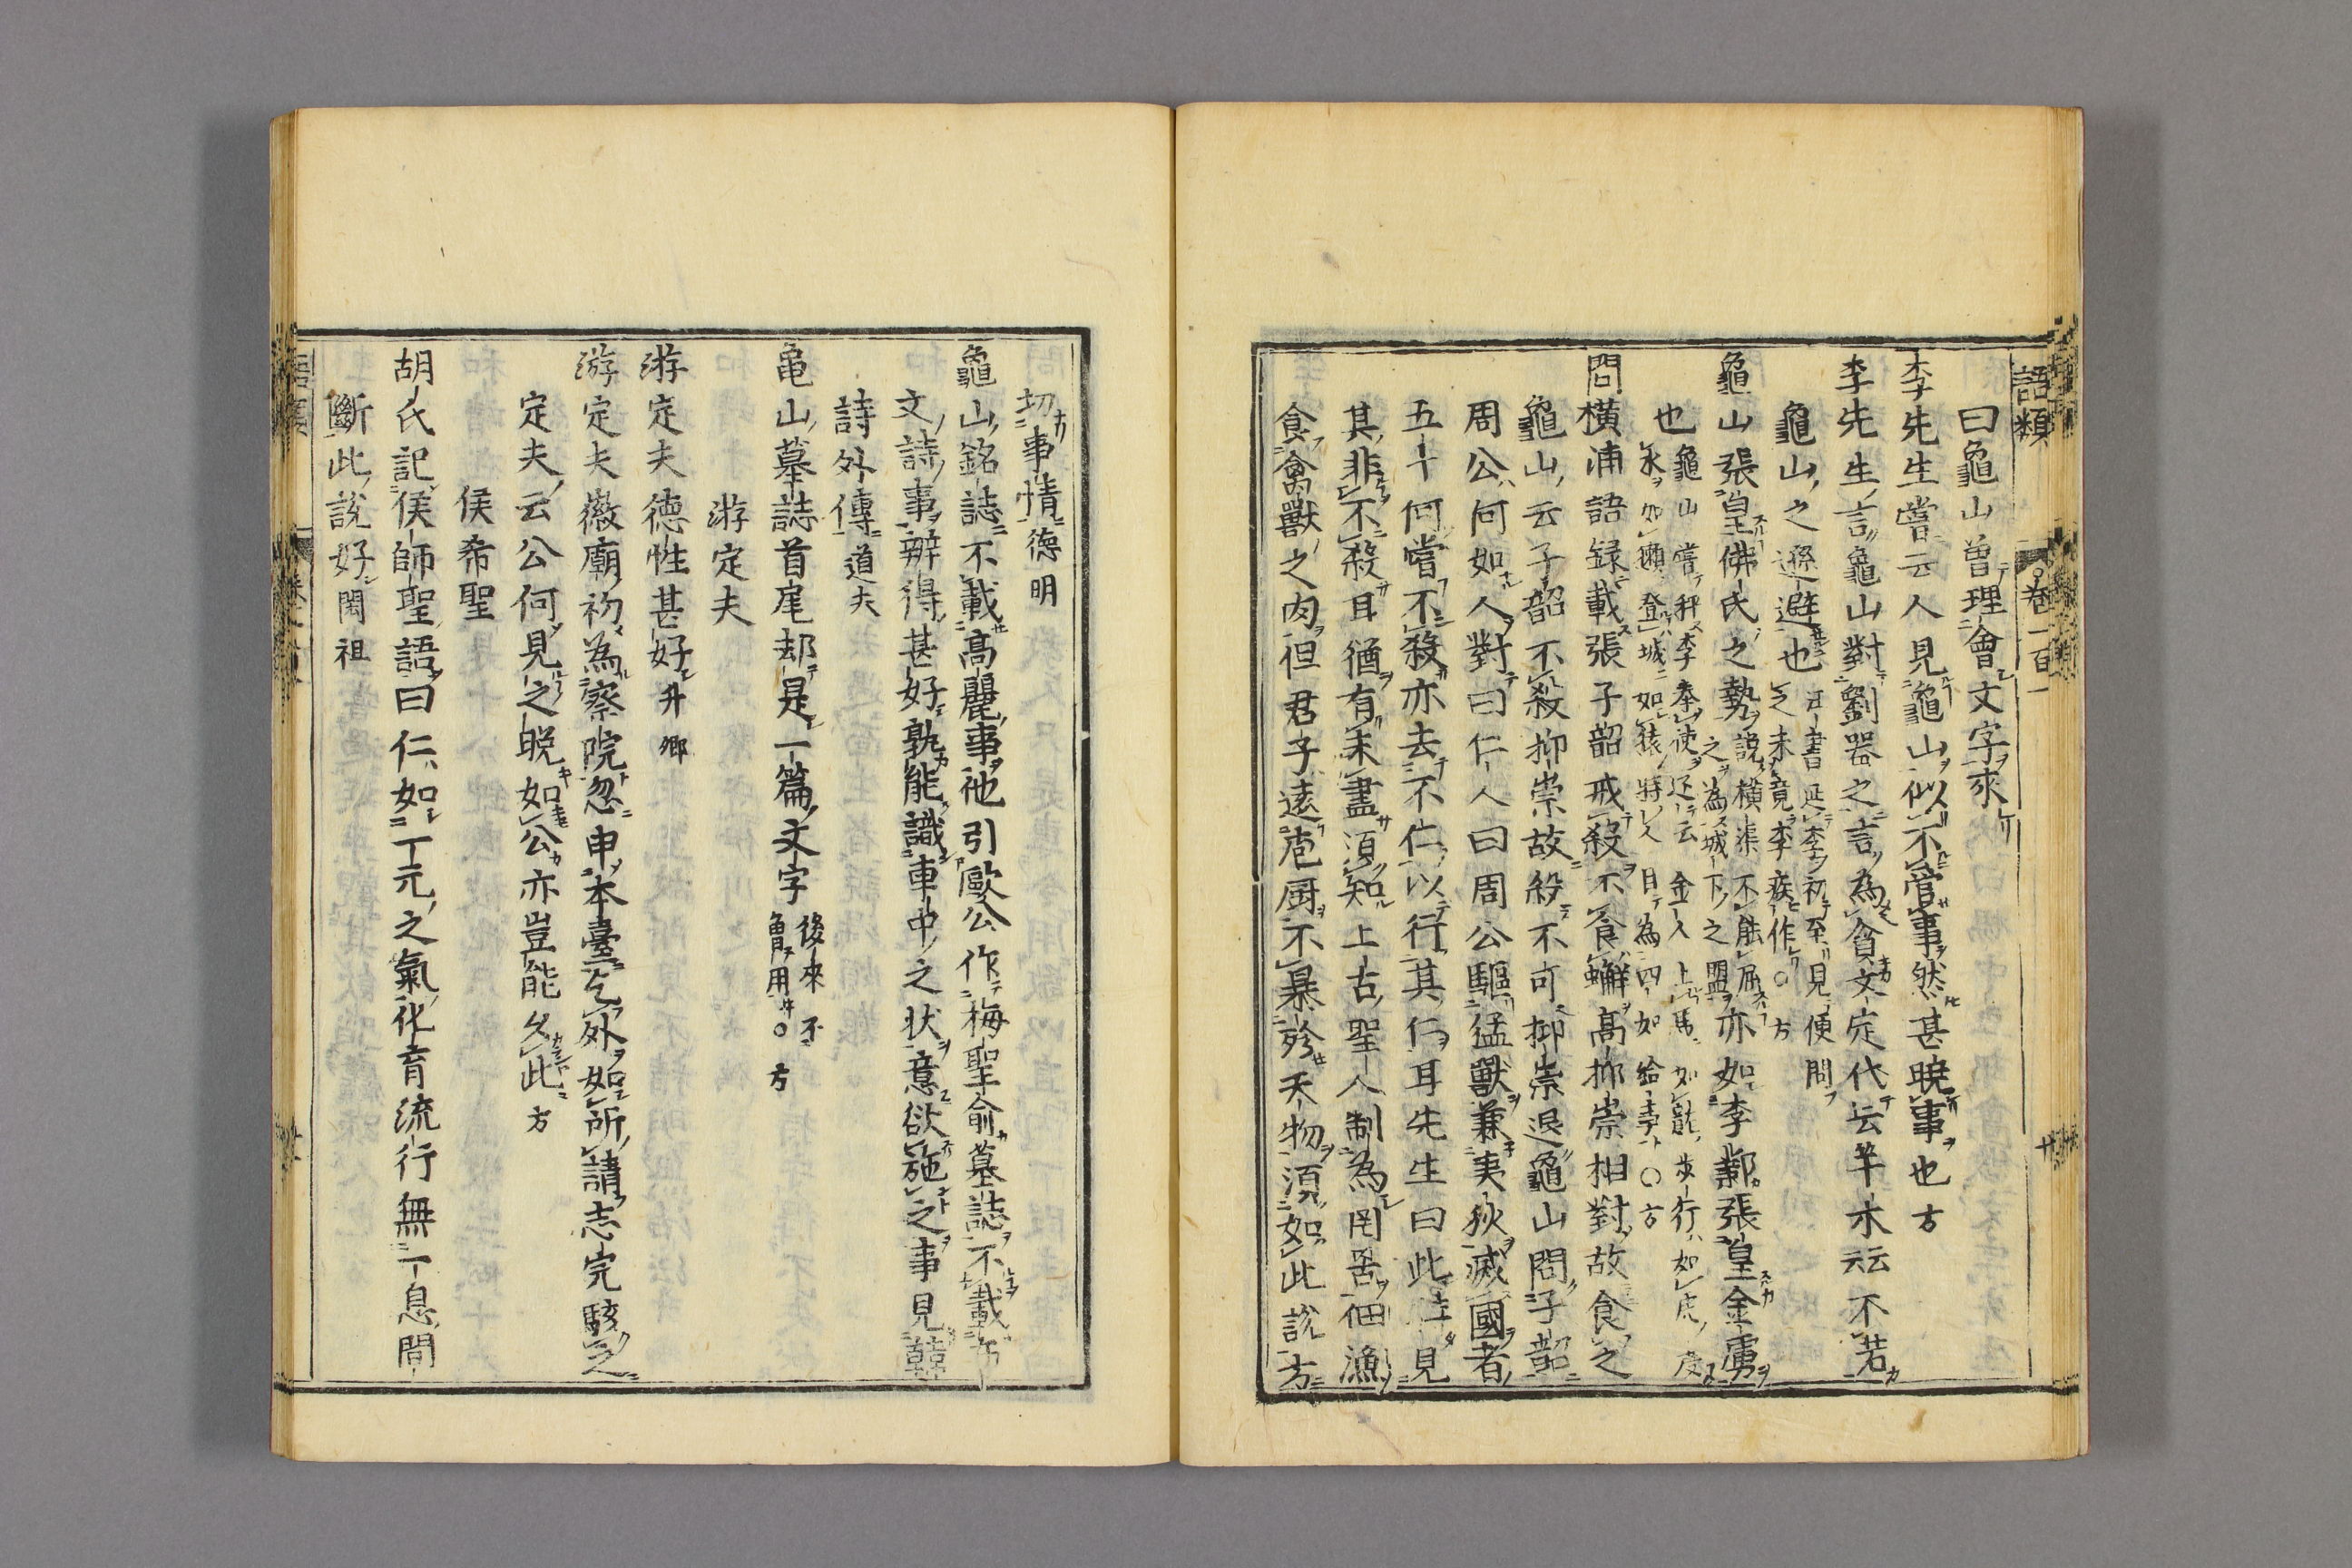 語類 卷一百一 廿
曰龜山曽理會文字來
李先生嘗云人見龜山似不管事然甚曉事也方
李先生言龜山對劉器之言為貧文定代云竿木云云不若
龜山之遜避也汪書延李初至見便問
之未竟李疾作○方
龜山張皇佛氏之勢說橫渠不能屈之為城下之盟亦如李鄴張皇金虜
也龜山嘗稱李奉使還云金人上馬如龍步行如虎度
水如獺登城如猿時人目為四如給事○方
問橫浦語録載張子韶戒殺不食蠏高抑崇相對故食之
龜山云子韶不殺抑崇故殺不可抑崇退龜山問子韶
周公何如人對曰仁人曰周公驅猛獸兼夷狄滅國者
五十何嘗不殺亦去不仁以行其仁耳先生曰此特見
其非不殺耳猶有未盡須知上古聖人制為罔罟佃漁
食禽獸之肉但君子遠庖厨不暴殄天物須如此說方
切事情德明
龜山銘誌不載高麗事他引歐公作梅聖俞墓誌不載希
文詩事辨得甚好孰能識車中之狀意欲施之事見韓
詩外傳道夫
龜山墓誌首尾却是一篇文字後來不
曽用○方
游定夫
游定夫德性甚好升卿
游定夫徽廟初為察院忽申本臺乞外如所請志完駭之
定夫云公何見之晚如公亦豈能久此方
侯希聖
胡氏記侯師聖語曰仁如一元之氣化育流行無一息間
斷此說好閎祖